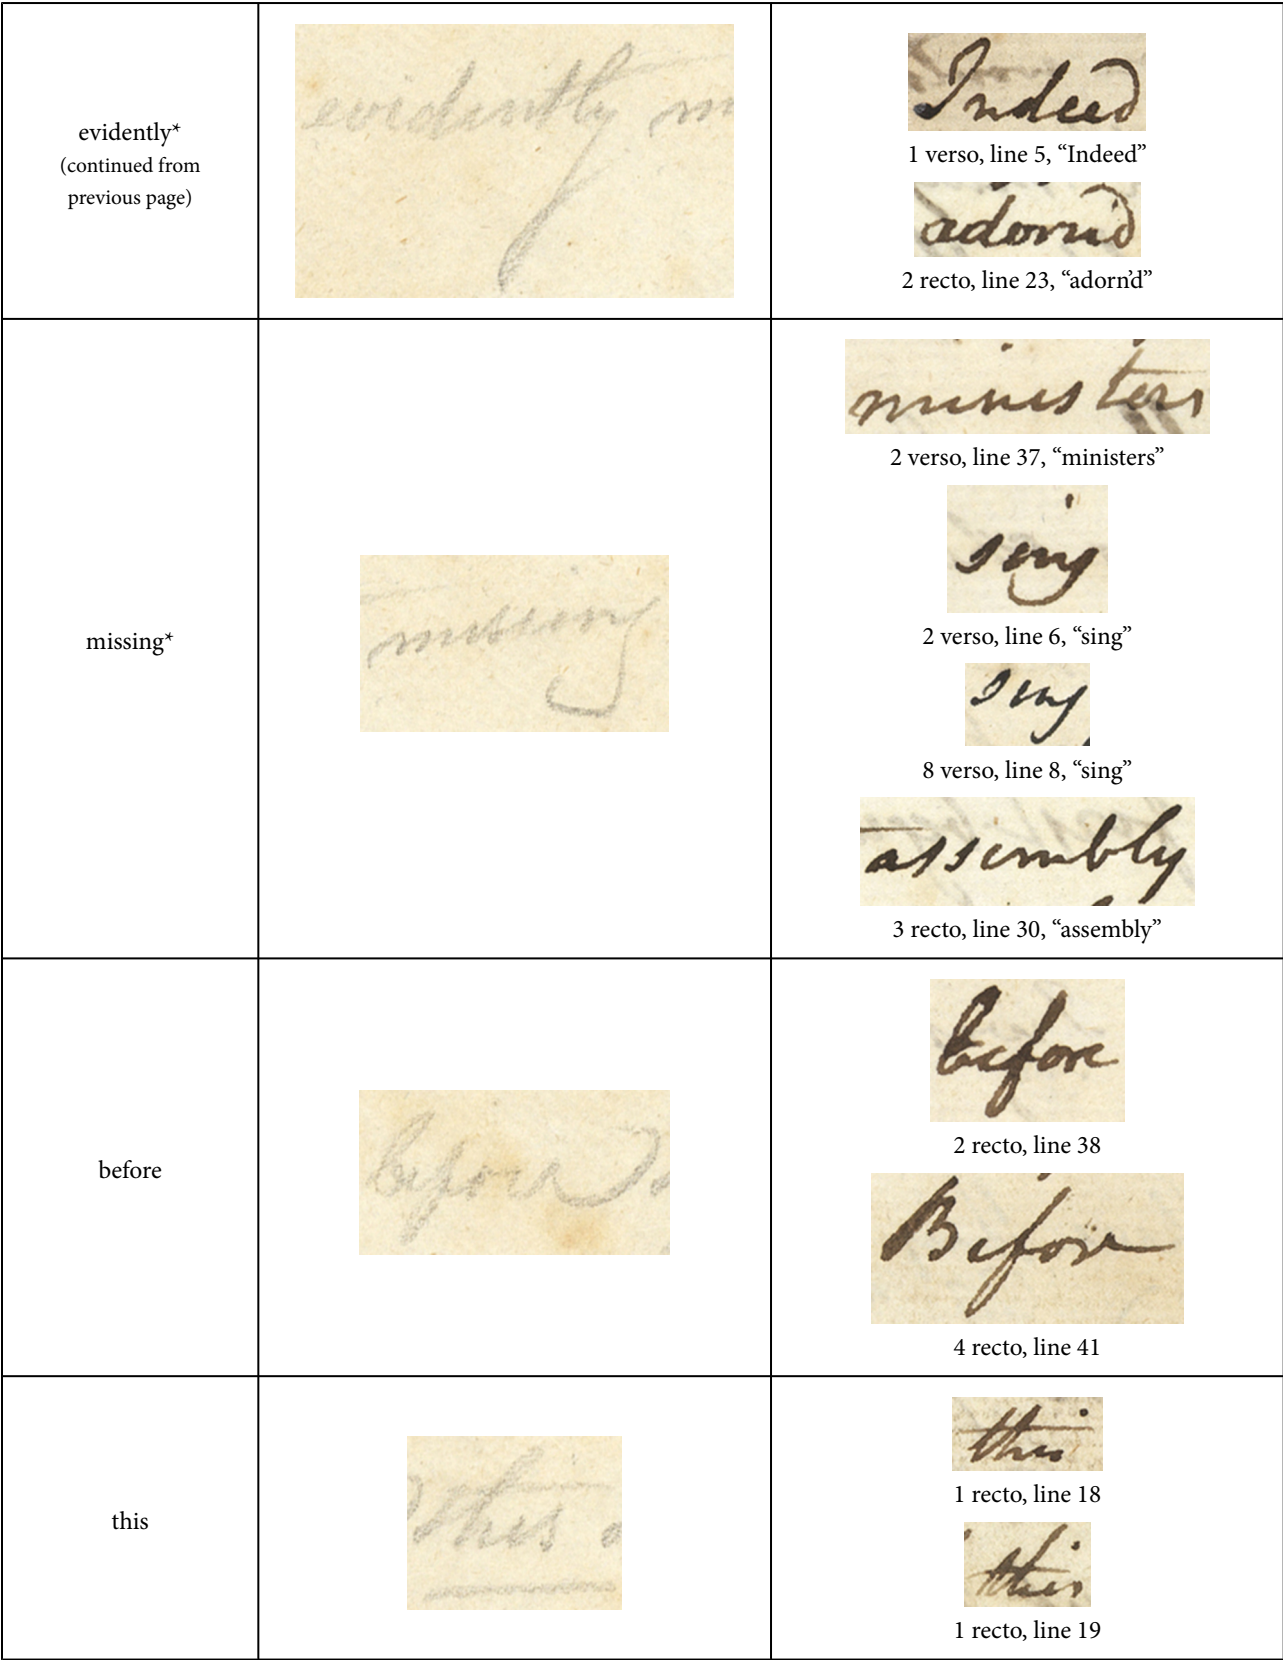 evidently*
(continued from
previous page)
evidently m
Indeed
1 verso, line 5, “Indeed”
adorn'd
2 recto, line 23, “adorn'd”
missing*
missing
ministers
2 verso, line 37, “ministers”
sing
2 verso, line 6, “sing”
sing
8 verso, line 8, “sing”
assembly
3 recto, line 30, “assembly”
before
before
before
2 recto, line 38
Before
4 recto, line 41
this
this
this
1 recto, line 18
this
1 recto, line 19